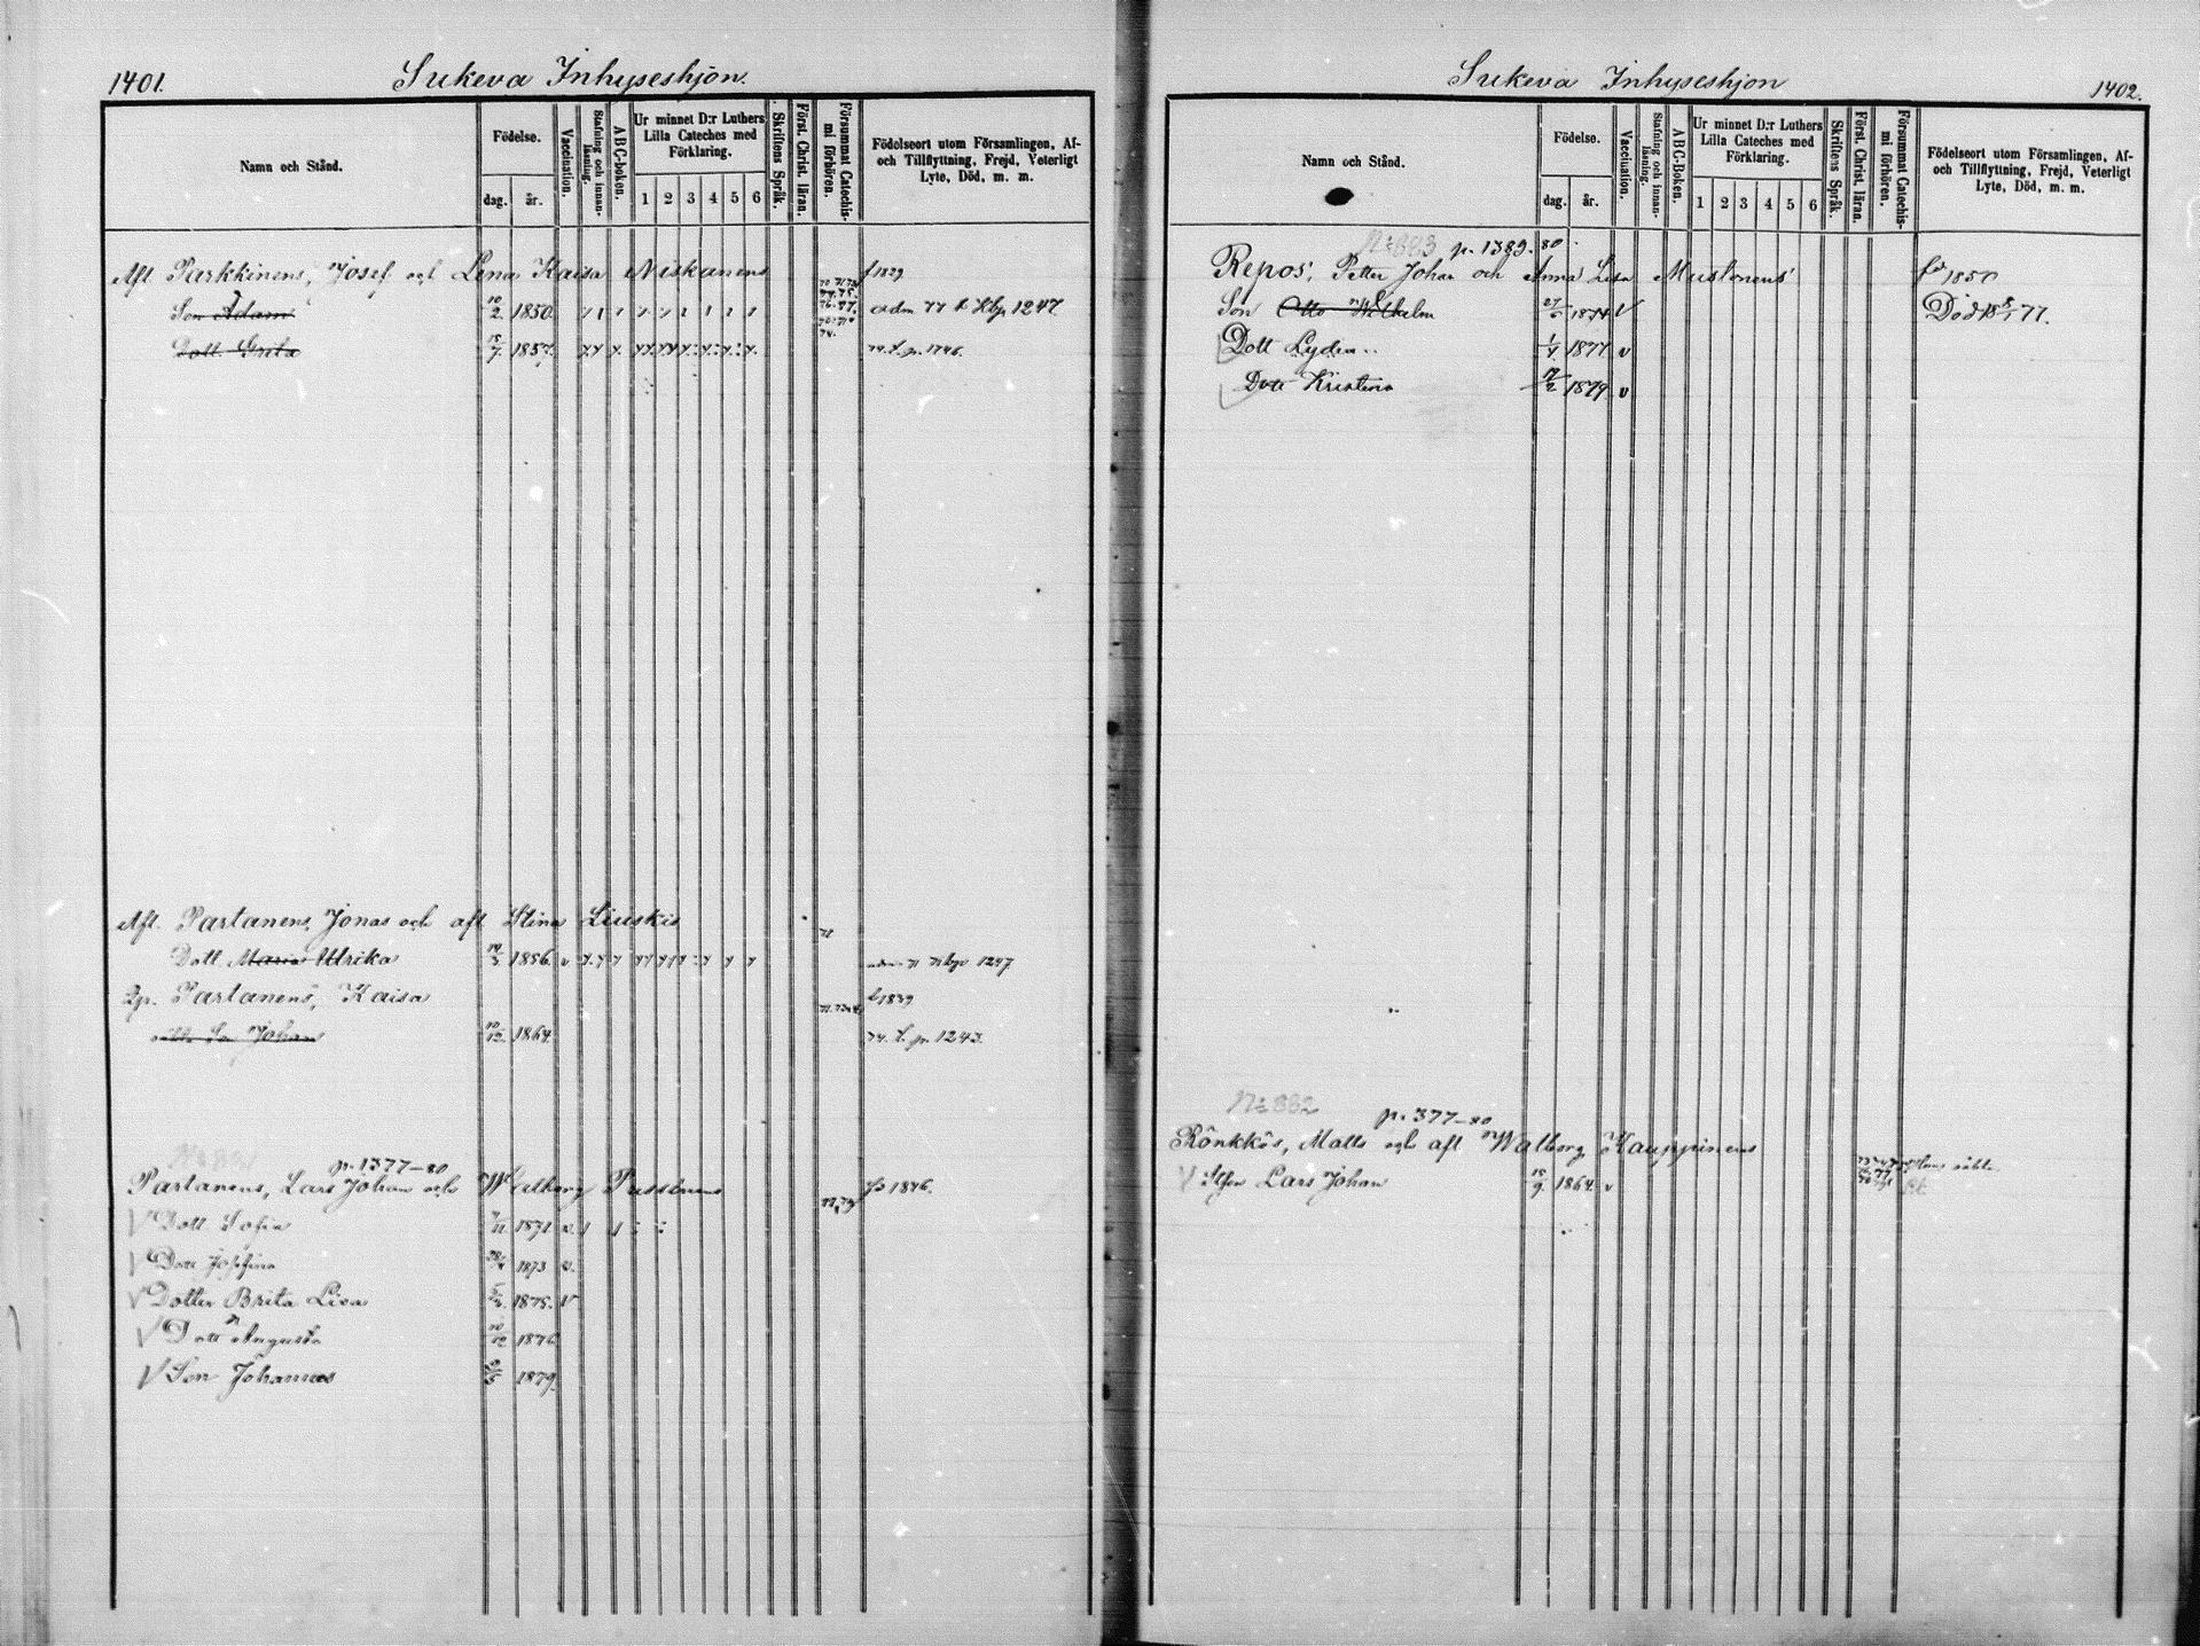 1401.
Sukeva Inhyseshjon.
Namn och Stånd.
Födelse.
dag.
år.
Vaccination.
Stafning och innan-
läsning.
ABC-boken.
Ur minnet D:r Luthers
Lilla Cateches med
Förklaring.
1 2 3 4 5 6
Skriftens Språk.
Först. Christ. läran.
Försummat Catechis-
mi förhören.
Födelseort utom Församlingen, Af-
och Tillflyttning, Frejd, Veterligt
Lyte, Död, m. m.
Afl. Parkkinens, Josef och Lena Kaisa Niskanens f 1829
Son Adam 10/2 1850 adm 77 t Kbp 1247.
Dott. Brita 15/7 1857. 74. t. p. 1746.
Afl. Partanens, Jonas och afl Stina Liuskis
Dott Maria Ulrika 14/3 1856. v 71 Kbp 1247
Partanens, Kaisa f 1839
Son Johan 10/12 1864. 74. t. p. 1243.
p. 1377-80
Partanens, Lars Johan och Walborg 1846.
V Dott Sofia 1871 v
V Dott Josefina 28/4 1873 v.
V Dotter Brita Lisa 1875. V
V Dott Augusta 10/12 1876
V Son Johannes 1879.
Sukeva Inhyseshjon
1402.
Namn och Stånd.
Födelse.
dag.
år.
Vaccination.
Stafning och innan-
läsning.
ABC-Boken.
Ur minnet D:r Luthers
Lilla Cateches med
Förklaring.
1 2 3 4 5 6
Skriftens Språk.
Först. Christ. läran.
Försummat Catechis-
mi förhören.
Födelseort utom Församlingen, Af-
och Tillflyttning, Frejd, Veterligt
Lyte, Död, m. m.
No 883 p. 1389.80
Repos', Petter Johan och Anna Lisa Mustonens' fo 1850
Son Otto Wilhelm 1874 V Död 18 8/1 77.
Dott Lydia 1/4 1877 v
Dott Kristina 1879 v
No 882
p. 377-80
Rönkkös, Matts och afl Walborg Kauppinens
Son Lars Johan 15/9 1864. v